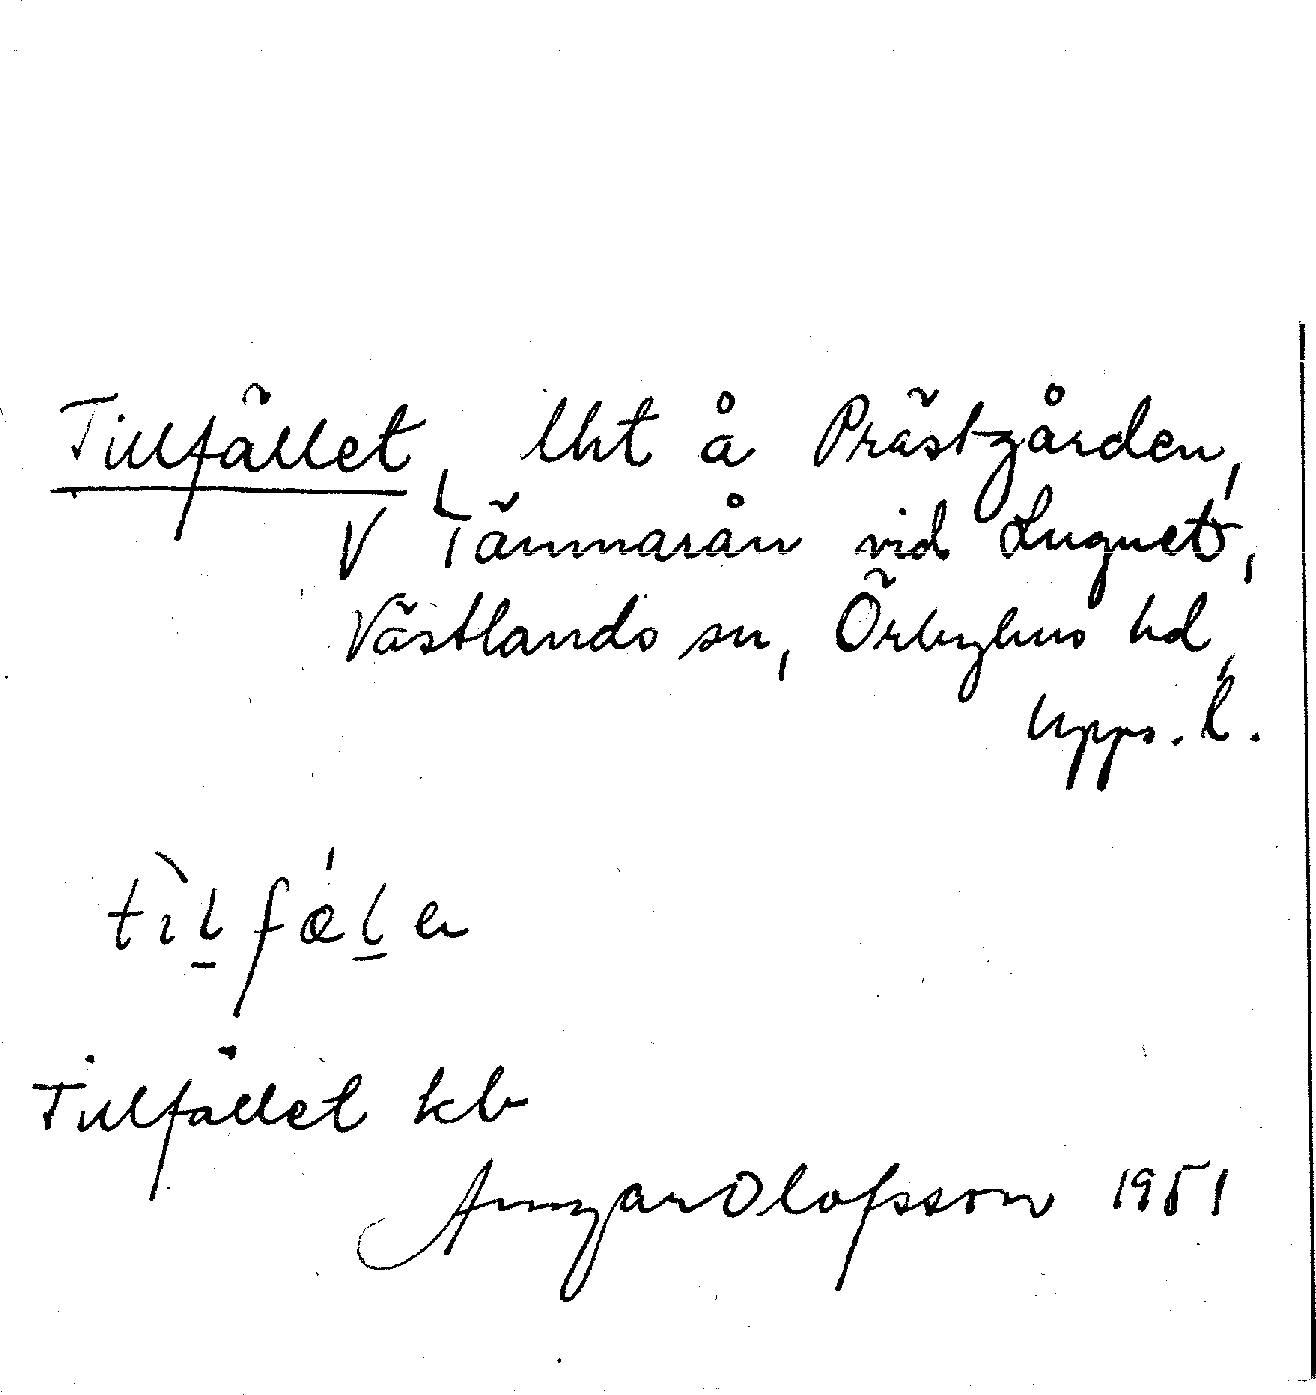 Tillfället, lht å Prästgården,
V Tämnarån vid Lugnet,
Västlands sn, Örbyhus hd,
Upps. l.
tìḻfǽḻə
Tillfället kb
Ansgar Olofsson 1951